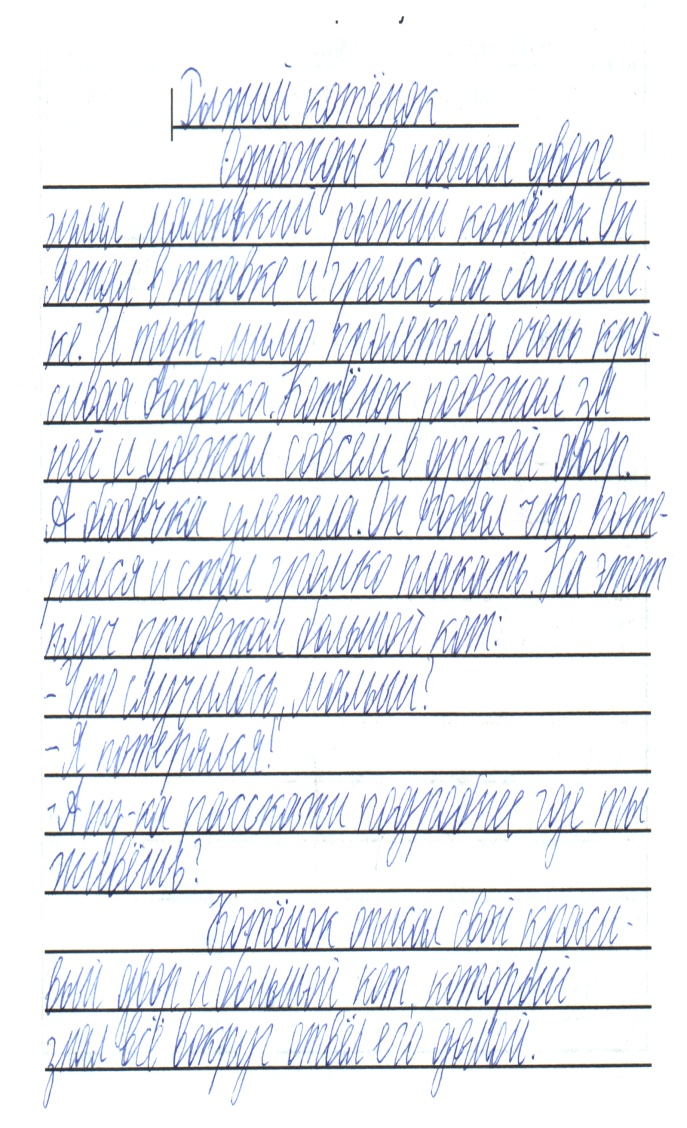 Рыжий котёнок
Однажды в нашем дворе
гулял маленький рыжий котёнок. Он
лежал в травке и грелся на солныш-
ке. И тут мимо пролетела очень кра-
сивая бабочка. Котёнок побежал за
ней и убежал совсем в другой двор.
А бабочка улетела. Он понял что поте-
рялся и стал громко плакать. На этот
плач прибежал большой кот:
- Что случилось, малыш?
- Я потерялся!
- А ну-ка расскажи подробнее где ты
живёшь?
Котёнок описал свой краси-
вый двор и большой кот, который
знал всё вокруг отвёл его домой.